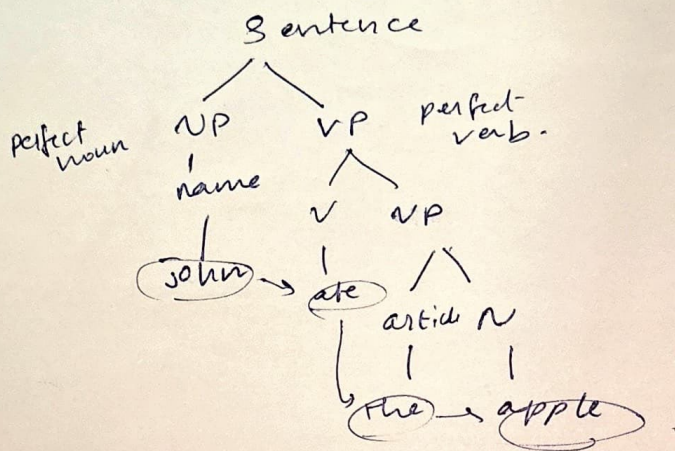 Sentence
perfect
noun
NP
VP
perfect
verb.
name
V
NP
john
ate
article
N
the
apple